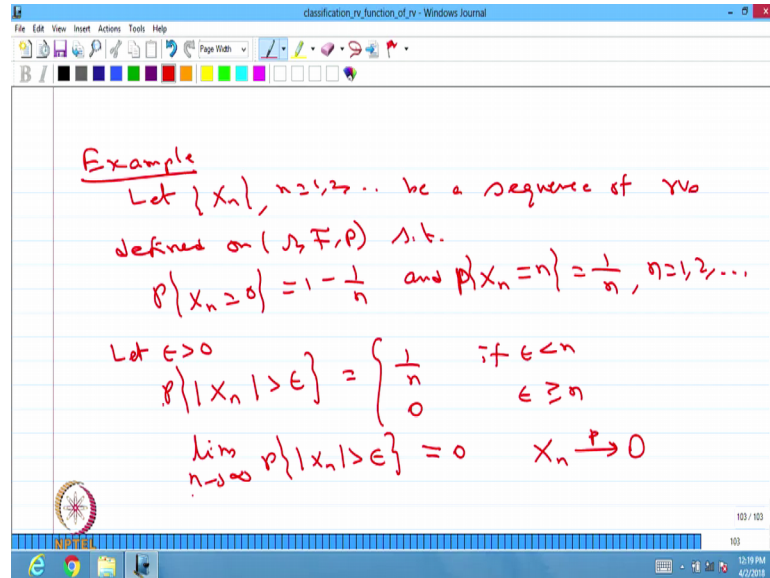 classification_rv_function_of_rv - Windows Journal
File Edit View Insert Actions Tools Help
Page Width
B I
Example
Let {Xn}, n=1,2,... be a sequence of rvs
defined on (Ω, F, P) s.t.
P{Xn=0} = 1 - 1/n and P{Xn=n} = 1/n, n=1,2,...
Let ϵ>0
P{|Xn|>ϵ} = { 1/n if ϵ<n
0 ϵ≥n
lim n→∞ P{|Xn|>ϵ} = 0 Xn →P 0
103 / 103
NPTEL
103
12:19 PM
4/2/2018